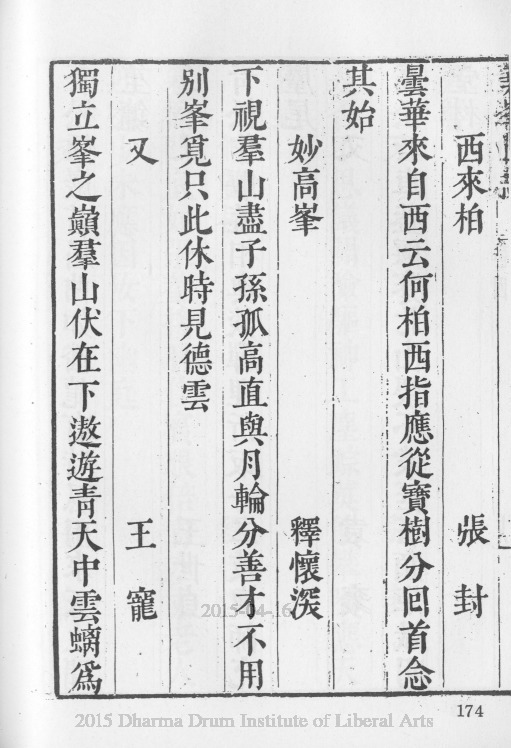 西來柏 張封
曇華來自西云何柏西指應從寶樹分回首念
其始
妙高峯 釋懷深
下視羣山盡子孫孤高直與月輪分善才不用
别峯覓只此休時見德雲
又 王寵
獨立峯之巔羣山伏在下遨遊靑天中雲螭爲
174
2015-04-16
2015 Dharma Drum Institute of Liberal Arts